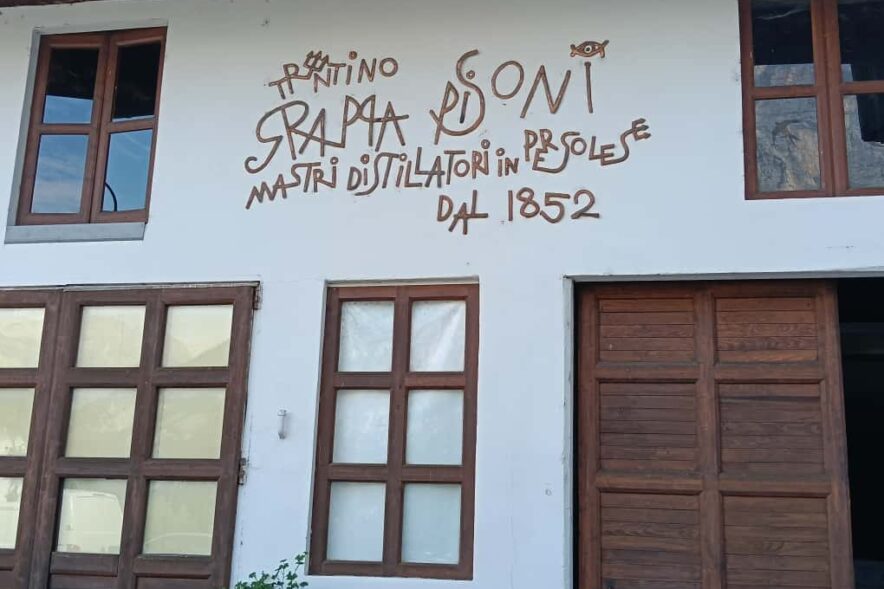 TRENTINO
GRAPPA PISONI
MASTRI DISTILLATORI in PERGOLESE
DAL 1852